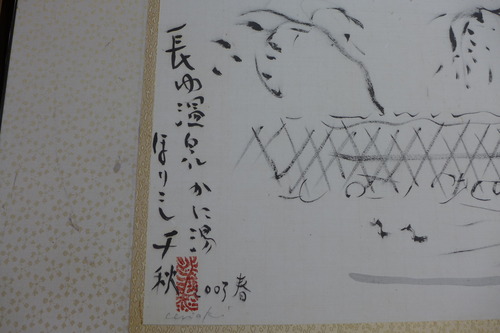 長湯温泉かに湯
ほりこし千秋
003春